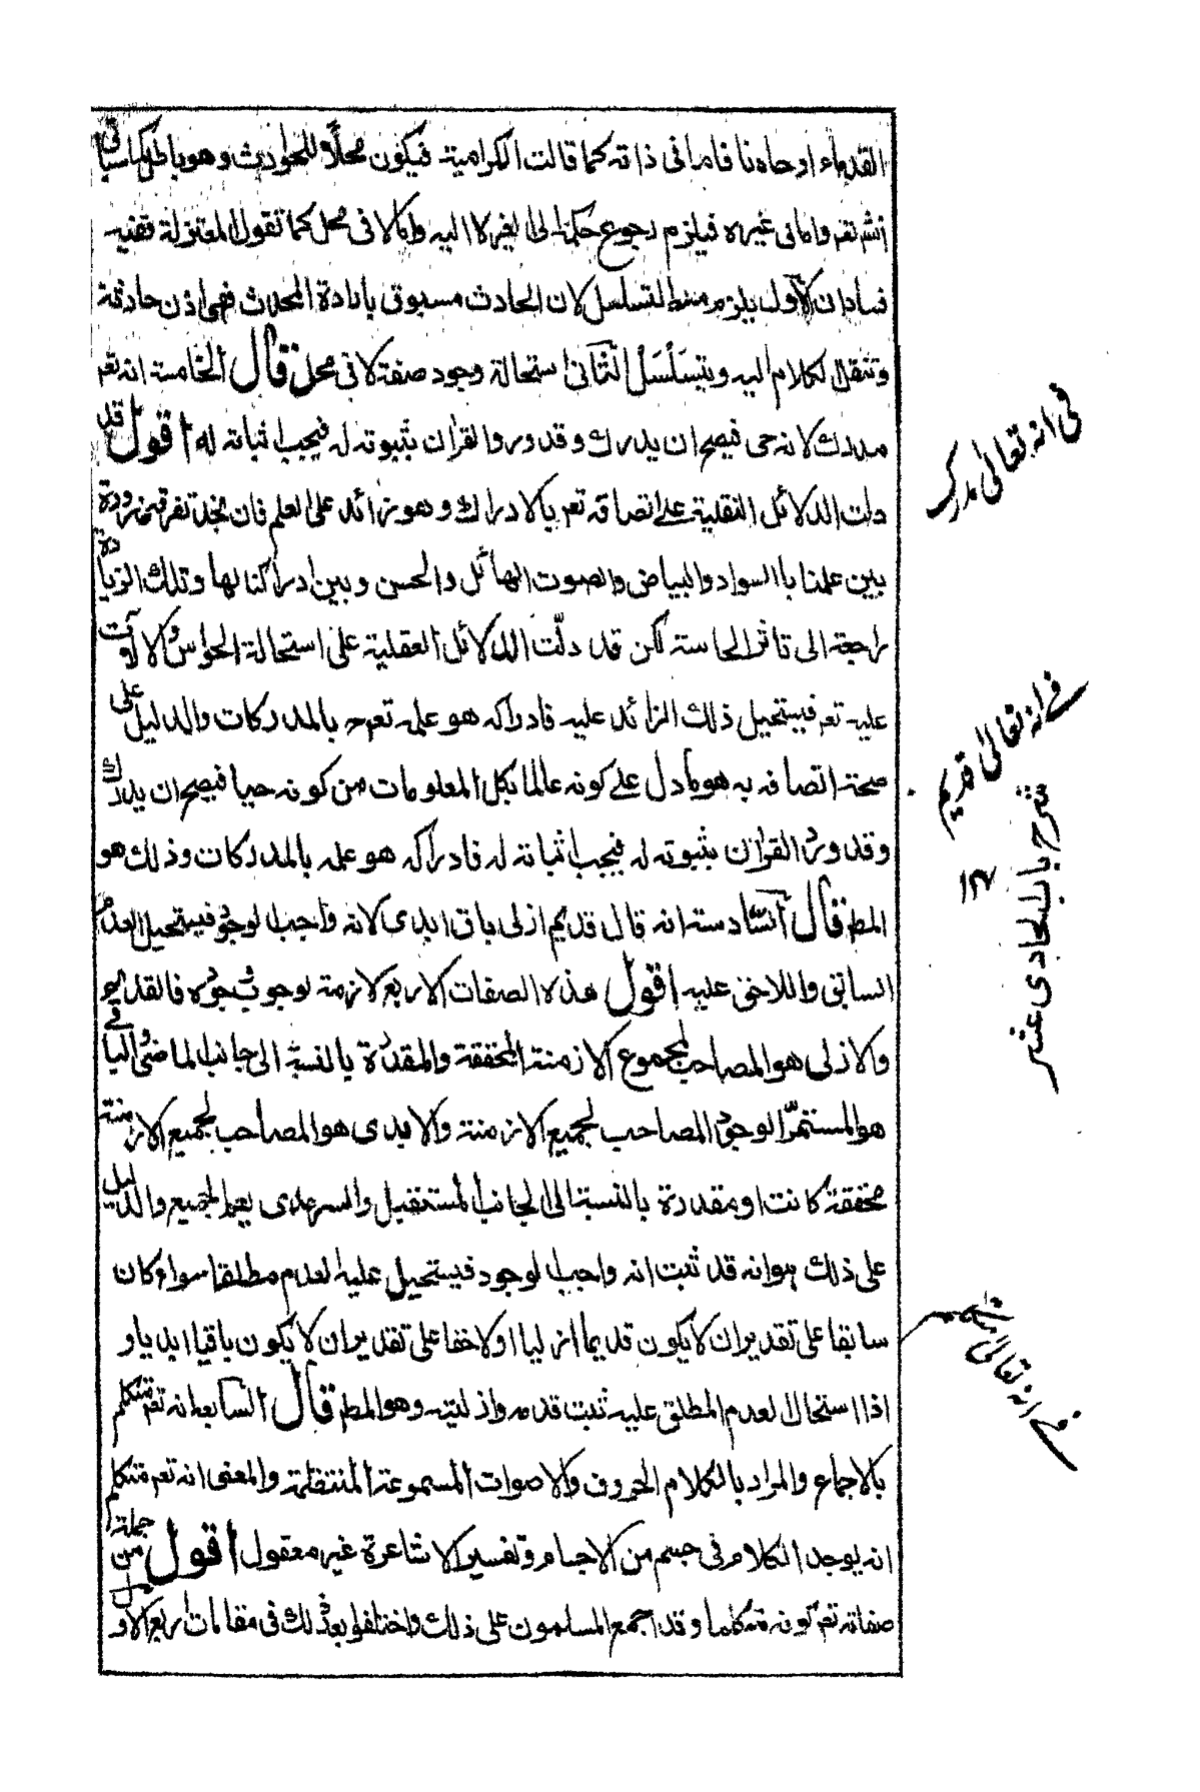 القدماء او حادثا فاما فی ذاته کما قالت الکرامیة فیکون محلا للحوادث وهو باطل کما سیاتی
انشاء تعم واما فی غیره فیلزم رجوع حکمه الی الغیر لا الیه واما لا فی محل کما تقول المعتزلة ففیه
فسادان الاول یلزم منه التسلسل لان الحادث مسبوق بارادة المحدث فهی اذن حادثة
وننقل الکلام الیه ویتسلسل الثانی استحالة وجود صفة لا فی محل قال الخامسة انه تعم
مدرک لانه حی فیصح ان یدرک وقد ورد القران بثبوته له فیجب اثباته له اقول قد
دلت الدلائل النقلیة علی اتصافه تعم بالادراک وهو زائد علی العلم فان نجد تفرقة ضرورة
بین علمنا باالسواد والبیاض والصوت الهائل والحسن وبین ادراکنا لها وتلک الزیادة
راجعة الی تاثر الحاسة لکن قد دلّت الدلائل العقلیة علی استحالة الحواس والآلات
علیه تعم فیستحیل ذلک الزائد علیه فادراکه هو علمه تعم ح بالمدرکات والدلیل علی
صحة اتصافه به هو ما دل علی کونه عالما بکل المعلومات من کونه حیا فیصح ان یدرک
وقد ورد القران بثبوته له فیجب اثباته له فادراکه هو علمه بالمدرکات وذلک هو
المط قال السّادسة انه قال قدیم ازلی باق ابدی لانه واجب الوجود فیستحیل العدم
السابق واللاحق علیه اقول هذه الصفات الاربع لازمة لوجوب وجوده فالقدیم هو
والازلی هو المصاحب لمجموع الازمنة المحققة والمقدرة بالنسبة الی جانب الماضی والباقی
هو المستمرّ الوجود المصاحب لجمیع الازمنة والابدی هو المصاحب لجمیع الازمنة
محققة کانت او مقدرة بالنسبة الی الجانب المستقبل والسرمدی یعم الجمیع والدلیل
علی ذلک هو انه قد ثبت انه واجب الوجود فیستحیل علیه العدم مطلقا سواء کان
سابقا علی تقدیر ان لا یکون قدیما ازلیا او لاحقا علی تقدیر ان لا یکون باقیا ابدیا و
اذا استحال العدم المطلق علیه ثبت قدمه وازلیته وهو المط قال السابعة انه تعم متکلم
بالاجماع والمراد بالکلام الحروف والاصوات المسموعة المنتظمة والمعنی انه تعم متکلم
انه یوجد الکلام فی جسم من الاجسام وتفسیر الاشاعرة غیر معقول اقول من جملة
صفاته تعم کونه متکلما وقد اجمع المسلمون علی ذلک واختلفوا بعد ذلک فی مقامات اربع الاو
فی انه تعالی مدرک
فی انه تعالی قدیم
شرح باب الحادی عشر
فی انه تعالی متکلم